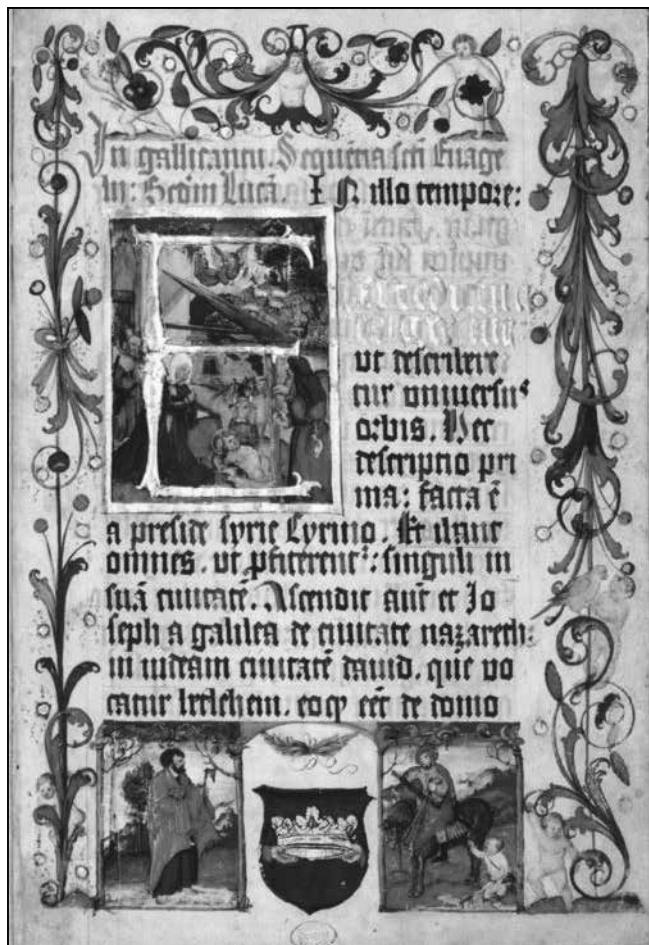 In gallicantu. Sequētia scti Euāge
lij: Scdm Lucā. IN illo tempore:
ut describere
tur vniuersuꝰ
orbis. Hec
descriptio pri
ma: facta ē
a preside syrie Cyrino. Et ibant
omnes. ut ꝓfiterent': singuli in
suā ciuitatē. Ascendit aūt et Jo
seph a galilea de ciuitate nazareth:
in iudeam ciuitatē dauid. que vo
catur bethlehem. eoq eēt de domo